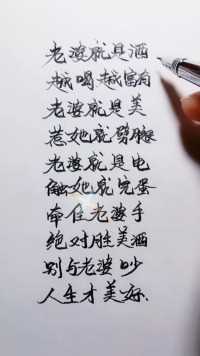 老婆就是酒
越喝越富有
老婆就是美
惹她就劈腿
老婆就是电
触她就完蛋
牵住老婆手
绝对胜美酒
别与老婆吵
人生才美好.